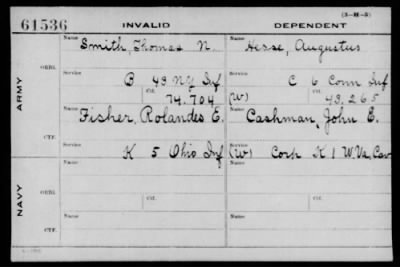 (3-H-5)
61536 INVALID DEPENDENT
ARMY
ORIG.
Name Smith, Thomas N. Name Hesse, Augustus
Service B 43 NY Inf Service C 6 Conn Inf
Ctf. 74.704 (W) Ctf. 43,265
CTF.
Name Fisher, Rolandes E. Name Cashman, John E.
Service K 5 Ohio Inf Service (W) Corp K 1 W.Va. Cav
NAVY
ORIG.
Name Name
Service Ctf. Service Ctf.
CTF.
Name Name
Service Service